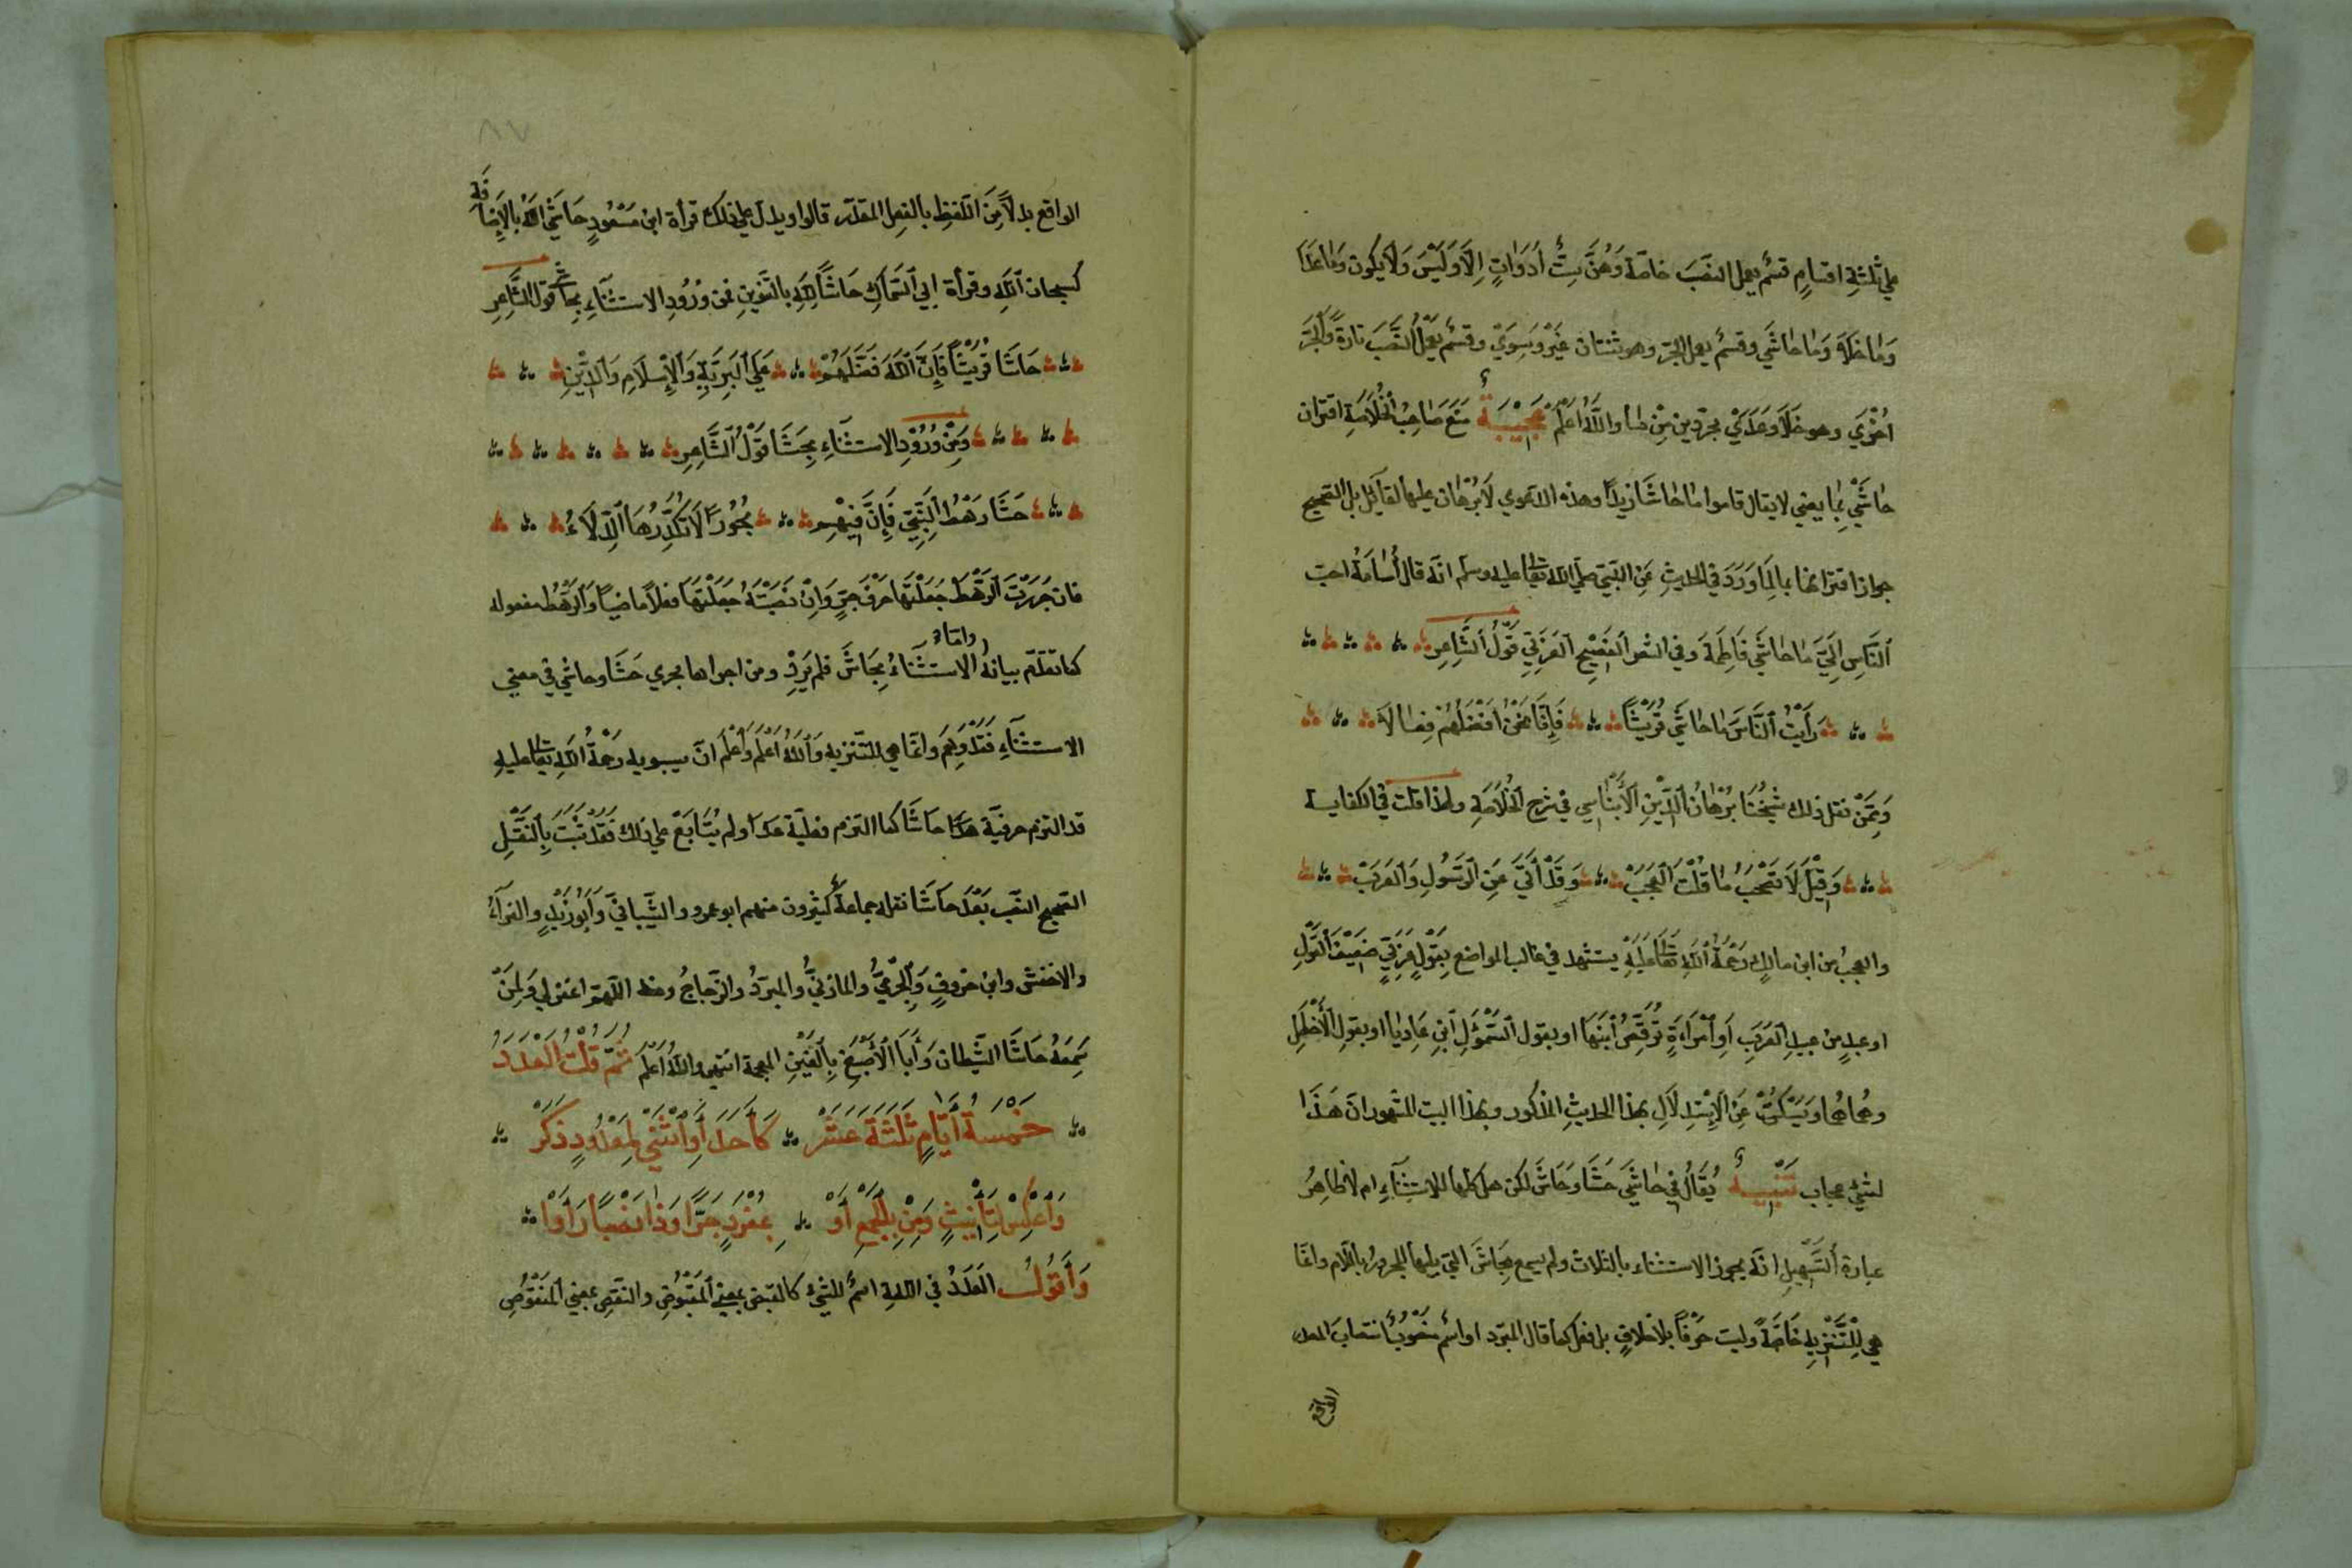 على ثلثة اقسام قسم يعمل النصب خاصة وهن ست أدوات الا وليس ولا يكون وما عدا
وما خلا وما حاشي وقسم يعمل الجر وهو ثنتان غير وسوي وقسم يعمل النصب تارة والجر
اخري وهو خلا وعدي مجردين من ما والله اعلم عجيبة منع صاحب الخلاصة اقتران
حاشي بما يعني لا يقال قاموا ما حاشا زيدا وهذه الدعوي لا برهان عليها لقائل بل الصحيح
جواز اقترانها بما لما ورد في الحديث عن النبي صلي الله تعالى عليه وسلم انه قال أسامة احب
الناس الي ما حاشي فاطمة وفي الشعر الفصيح العربي قول الشاعر
رأيت الناس ما حاشي قريشا فانا نحن افضلهم فعالا
وممن نقل ذلك شيخنا برهان الدين الأبناسي في شرح الخلاصة ولهذا قلت في الكفاية
وقيل لا تصحب ما قلت العجب وقد أتي عن الرسول والعرب
والعجب من ابن مالك رحمة الله تعالى عليه يستشهد في غالب المواضع بقول عربي ضعيف القول
او عبد من عبيد العرب أو امراءة ترقص ابنها او بقول السموأل ابن عاديا او بقول الأخطل
وهما هما ويسكت عن الاستدلال بهذا الحديث المذكور وبهذا البيت المشهور ان هذا
لشيء عجاب تنبيه يقال في حاشي حشا وحاش لكن هل كلها للاستثناء ام لا ظاهر
عبارة التسهيل انه يجوز الاستثناء بالثلاث ولم يسمع بحاش التي يليها المجرور باللام وانما
هي للتنزيه خاصة وليت حرفا بلا خلاف بل فعل كما قال المبرد او اسم منصوب انتصاب المصدر
الواقع
٨٧
الواقع بدلا من التلفظ بالفعل المقدر قالوا ويدل علي ذلك قرأة ابن مسعود حاشي الله بالإضافة
كسبحان الله وقرأة ابي السماك حاشا لله بالتنوين فمن ورود الاستثناء بحاشي قول الشاعر
حاشا قريشا فإن الله فضلهم علي البرية والإسلام والدين
ومن ورود الاستثناء بحشا قول الشاعر
حشا رهط النبي فإن فيهم بحورا لا تكدرها الدلاء
فان جررت الرهط جعلتها حرف جر وان نصبته جعلتها فعلا ماضيا والرهط مفعوله
كما تقدم بيانه واما الاستثناء بحاش فلم يرد ومن اجراها مجري حشا وحاشي في معني
الاستثناء فقد وهم وانما هي للتنزيه والله اعلم واعلم ان سيبويه رحمة الله تعالى عليه
قد التزم حرفية حاشا كما التزم فعلية عدا ولم يتابع علي ذلك فقد ثبت بالنقل
الصحيح النصب بعد حاشا نقله جماعة كثيرون منهم ابو عمرو والشيباني وأبو زيد والفراء
والاخفش وابن خروف والجرمي والمازني والمبرد والزجاج ومنه اللهم اغفر لي ولمن
سمعه حاشا الشيطان وأبا الأصبغ بالغين المعجمة انتهي والله اعلم ثم قلت العدد
خمسة أيام ثلثة عشر كأحد أو اثني لمعدود ذكر
واعكس لتأنيث ومن بالجمع أو بمفرد جرا وذا نصبا رأوا
وأقول العدد في اللغة اسم للشيء كالقبض بمعني المقبوض والنقص بمعني المنقوص